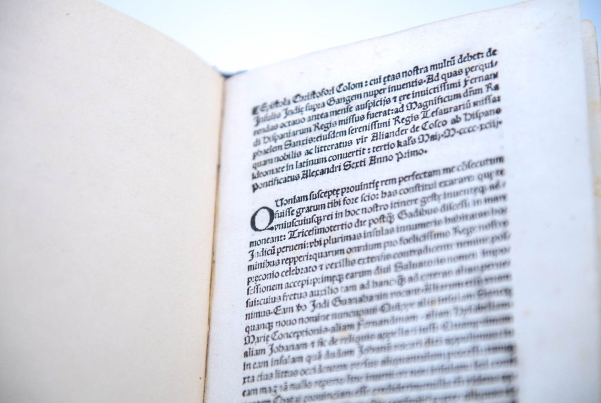 ¶ Epistola Christofori Colom: cui ętas nostra multū debet: de
Insulis Indię supra Gangem nuper inuentis. Ad quas perqui-
rendas octauo antea mense auspicijs ⁊ ęre inuictissimi Fernan
di Hispaniarum Regis missus fuerat: ad Magnificum dñm Ra
phaelem Sanxis: eiusdem serenissimi Regis Tesaurariū missa:
quam nobilis ac litteratus vir Aliander de Cosco ab Hispano
ideomate in latinum conuertit: tertio kal's Maij. M.cccc.xciij.
Pontificatus Alexandri Sexti Anno Primo.
Quoniam susceptę prouintię rem perfectam me cōsecutum
fuisse gratum tibi fore scio: has constitui exarare: quę te
vniuscuiusq; rei in hoc nostro itinere gestę inuentęq; ad-
moneant: Tricesimotertio die postq̄ Gadibus discessi in mare
Indicū perueni: vbi plurimas insulas innumeris habitatas ho-
minibus repperi: quarum omnium pro foelicissimo Rege nostro
pręconio celebrato ⁊ vexillis extensis contradicente nemine pos-
sessionem accepi: primęq; earum diui Saluatoris nomen impo-
sui: cuius fretus auxilio tam ad hanc q̄ ad ceteras alias perue-
nimus. Eam vo Indi Guanahanin vocant. Aliarum etiā vnam
quanq; nouo nomine nuncupaui. Quippe aliā insulam Sanctę
Marię Conceptionis. aliam Fernandinam. aliam Hysabellam.
aliam Johanam. ⁊ sic de reliquis appellari iussi.
in eam insulam quā dudum Johanā vocari dixi
xta eius littus occidentem versus
eam